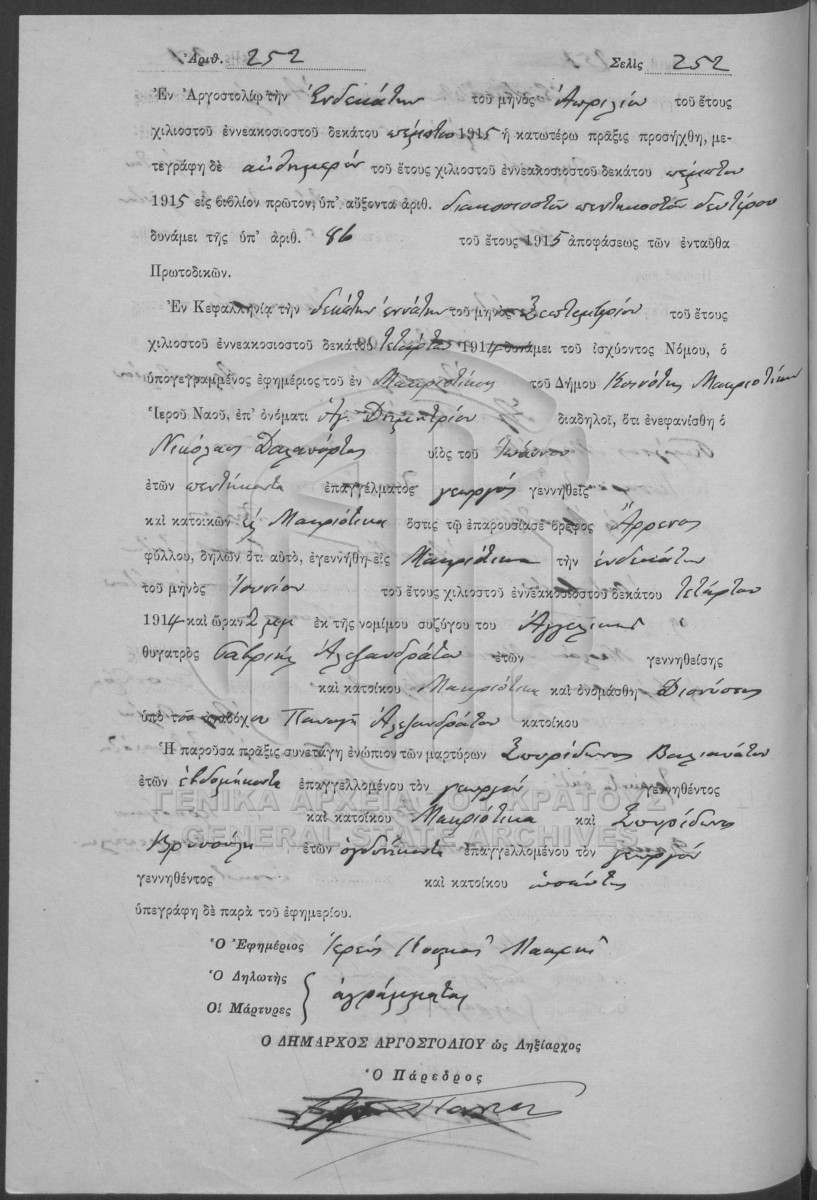 Ἀριθ. 252 Σελὶς 252
Ἐν Ἀργοστολίῳ τὴν Ἑνδεκάτην τοῦ μηνὸς Ἀπριλίου τοῦ ἔτους
χιλιοστοῦ ἐννεακοσιοστοῦ δεκάτου πέμπτου 1915 ἡ κατωτέρω πρᾶξις προσήχθη, με-
τεγράφη δὲ αὐθημερόν τοῦ ἔτους χιλιοστοῦ ἐννεακοσιοστοῦ δεκάτου πέμπτου
1915 εἰς βιβλίον πρῶτον, ὑπ' αὔξοντα ἀριθ. διακοσιοστὸν πεντηκοστὸν δεύτερον
δυνάμει τῆς ὑπ' ἀριθ. 86 τοῦ ἔτους 1915 ἀποφάσεως τῶν ἐνταῦθα
Πρωτοδικῶν.
Ἐν Κεφαλληνίᾳ τὴν δεκάτην ἐννάτην τοῦ μηνὸς Σεπτεμβρίου τοῦ ἔτους
χιλιοστοῦ ἐννεακοσιοστοῦ δεκάτου τετάρτου 1914 δυνάμει τοῦ ἰσχύοντος Νόμου, ὁ
ὑπογεγραμμένος ἐφημέριος τοῦ ἐν Μακρυοτίκοις τοῦ Δήμου Κοινότης Μακρυοτίκων
Ἱεροῦ Ναοῦ, ἐπ' ὀνόματι Ἁγ. Δημητρίου διαδηλοῖ, ὅτι ἐνεφανίσθη ὁ
Νικόλαος υἱὸς τοῦ Ἰωάννου
ἐτῶν πεντήκοντα ἐπαγγέλματος γεωργός γεννηθεὶς
καὶ κατοικῶν εἰς Μακριότικα ὅστις τῷ ἐπαρουσίασε βρέφος Ἄρρενος
φύλλου, δηλῶν ὅτι αὐτὸ, ἐγεννήθη εἰς Μακριότικα τὴν ἑνδεκάτην
τοῦ μηνὸς Ἰουνίου τοῦ ἔτους χιλιοστοῦ ἐννεακοσιοστοῦ δεκάτου τετάρτου
1914 καὶ ὥραν 2 μμ ἐκ τῆς νομίμου συζύγου του Ἀγγελικῆς
θυγατρὸς Γαβριὴλ Ἀλεξανδράτου ἐτῶν γεννηθείσης
καὶ κατοίκου Μακριότικα καὶ ὀνομάσθη Διονύσιος
ὑπὸ τοῦ ἀναδόχου Παναγῆ Ἀλεξανδράτου κατοίκου
Ἡ παροῦσα πρᾶξις συνετάγη ἐνώπιον τῶν μαρτύρων Σπυρίδωνος Βαλιανάτου
ἐτῶν ἑβδομήκοντα ἐπαγγελλομένου τὸν γεωργόν γεννηθέντος
καὶ κατοίκου Μακριότικα καὶ Σπυρίδωνος
ἐτῶν ὀγδοήκοντα ἐπαγγελλομένου τὸν γεωργόν
γεννηθέντος καὶ κατοίκου ὡσαύτως
ὑπεγράφη δὲ παρὰ τοῦ ἐφημερίου.
Ὁ Ἐφημέριος Ἱερεύς Μακρῆς
Ὁ Δηλωτὴς
Οἱ Μάρτυρες ἀγράμματοι
Ο ΔΗΜΑΡΧΟΣ ΑΡΓΟΣΤΟΛΙΟΥ ὡς Ληξίαρχος
Ὁ Πάρεδρος
ΓΕΝΙΚΑ ΑΡΧΕΙΑ ΤΟΥ ΚΡΑΤΟΥΣ
GENERAL STATE ARCHIVES